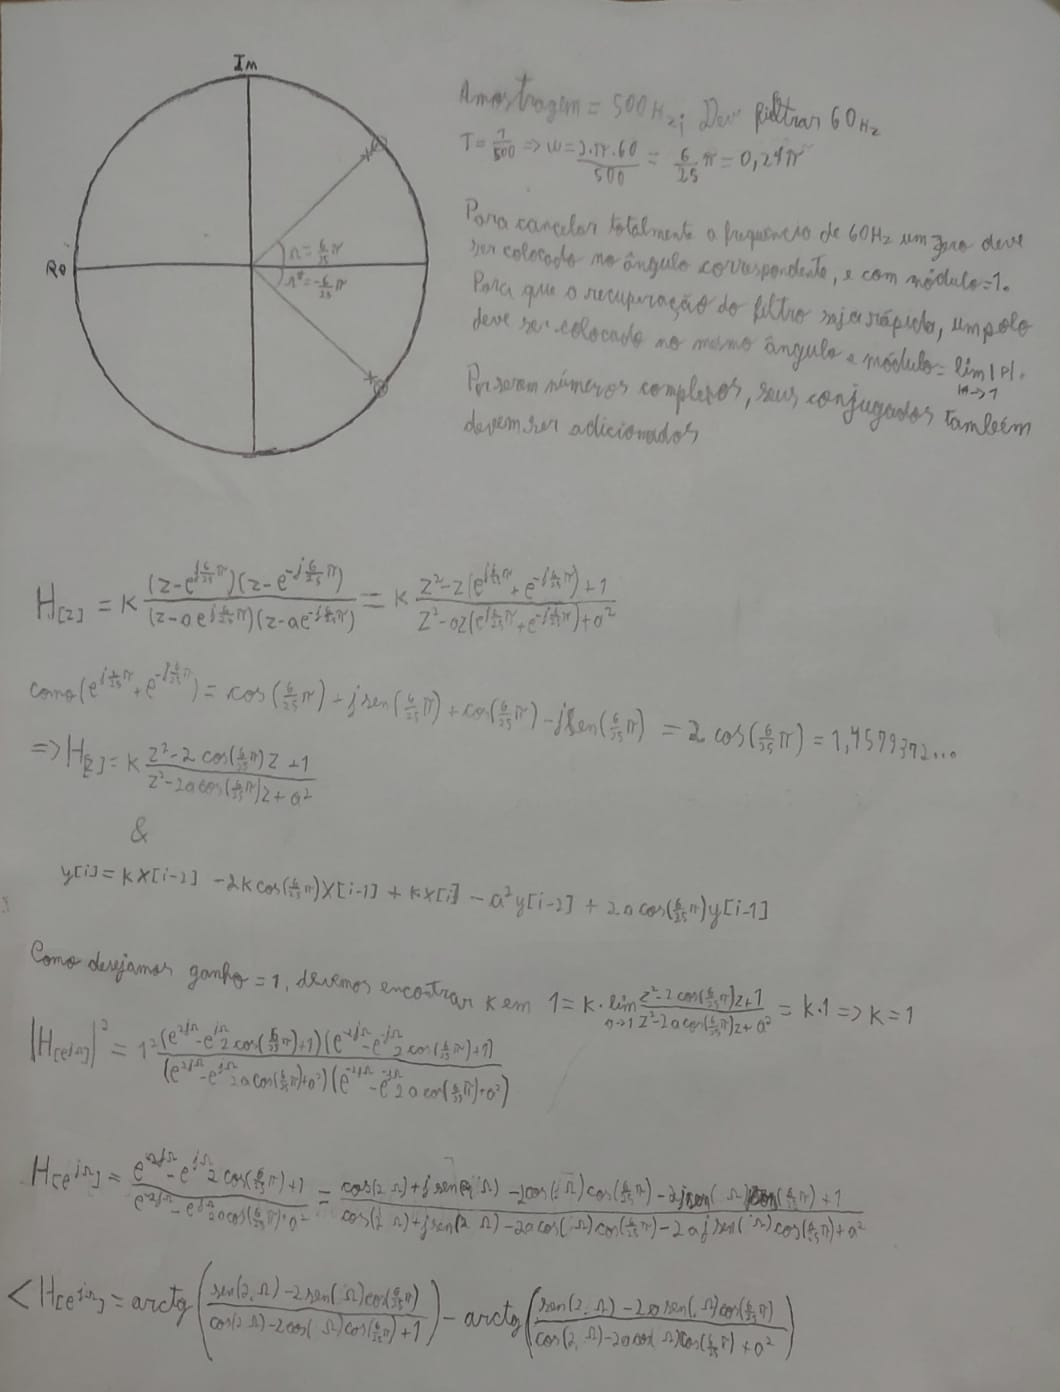 Im
Re
Ω = 6/25 π
Ω* = -6/25 π
Amostragem = 500Hz; Deve filtrar 60Hz
T = 1/500 => ω = 2.π.60/500 = 6/25 π = 0,24π
Para cancelar totalmente a frequência de 60Hz um zero deve
ser colocado no ângulo correspondente, e com módulo=1.
Para que a recuperação do filtro seja rápida, um polo
deve ser colocado no mesmo ângulo e módulo = lim |P|.
Por serem números complexos, seus conjugados também
devem ser adicionados
H[z] = K (z-e^(j6/25π))(z-e^(-j6/25π)) / (z-ae^(j6/25π))(z-ae^(-j6/25π)) = K z²-z(e^(j6/25π)+e^(-j6/25π))+1 / z²-az(e^(j6/25π)+e^(-j6/25π))+a²
como (e^(j6/25π)+e^(-j6/25π)) = cos(6/25π)+jsen(6/25π)+cos(6/25π)-jsen(6/25π) = 2 cos(6/25π) = 1,4579372...
=> H[z] = K z²-2cos(6/25π)z+1 / z²-2acos(6/25π)z+a²
&
y[i] = Kx[i-2] -2Kcos(6/25π)x[i-1] + Kx[i] - a²y[i-2] + 2acos(6/25π)y[i-1]
Como desejamos ganho = 1, devemos encontrar K em 1 = K.lim z²-2cos(6/25π)z+1 / z²-2acos(6/25π)z+a² = K.1 => K=1
|H[e^jΩ]|² = 1² (e^2jΩ-e^jΩ 2cos(6/25π)+1)(e^-2jΩ-e^-jΩ 2cos(6/25π)+1) / (e^2jΩ-e^jΩ 2acos(6/25π)+a²)(e^-2jΩ-e^-jΩ 2acos(6/25π)+a²)
H[e^jΩ] = e^2jΩ-e^jΩ 2cos(6/25π)+1 / e^2jΩ-e^jΩ 2acos(6/25π)+a² = cos(2Ω)+jsen(2Ω)-2cos(Ω)cos(6/25π)-2jsen(Ω)cos(6/25π)+1 / cos(2Ω)+jsen(2Ω)-2acos(Ω)cos(6/25π)-2ajsen(Ω)cos(6/25π)+a²
<H[e^jΩ] = arctg(sen(2Ω)-2sen(Ω)cos(6/25π) / cos(2Ω)-2cos(Ω)cos(6/25π)+1) - arctg(sen(2Ω)-2asen(Ω)cos(6/25π) / cos(2Ω)-2acos(Ω)cos(6/25π)+a²)